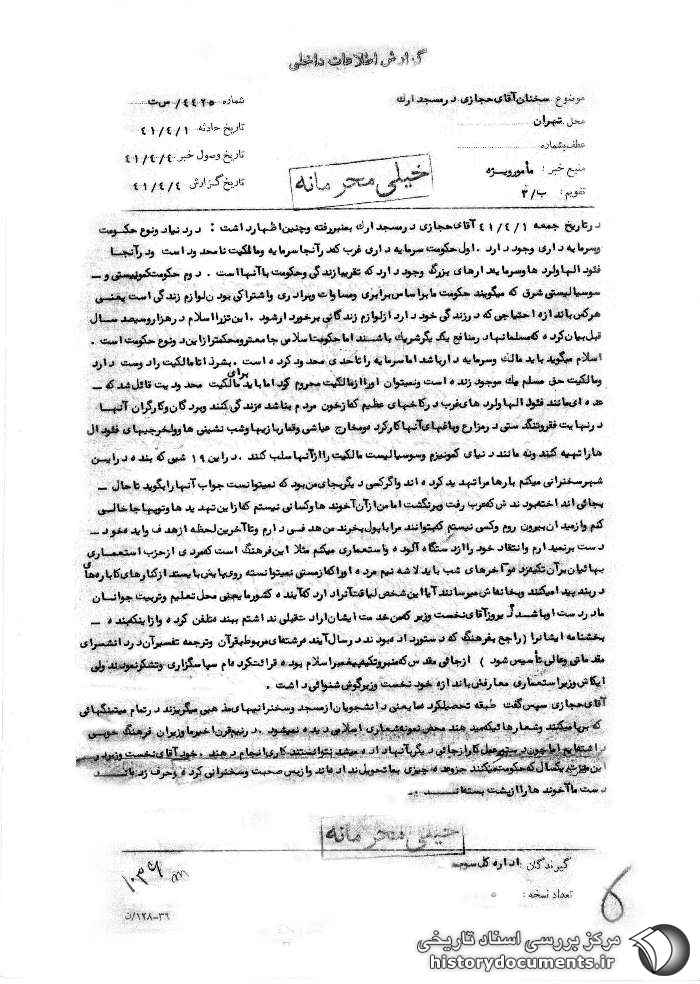 گزارش اطلاعات داخلی
موضوع سخنان آقای حجازی در مسجد ارک
شماره ۴۴۲۵/ س ت
محل تهران
تاریخ حادثه ۴۱/۴/۱
عطف بشماره
تاریخ وصول خبر ۴۱/۴/۴
منبع خبر : مأمور ویژه
تاریخ گزارش ۴۱/۴/۴
تقویم : ب/۳
خیلی محرمانه
در تاریخ جمعه ۴۱/۴/۱ آقای حجازی در مسجد ارک بمنبر رفته و چنین اظهار داشت : در دنیا دو نوع حکومت
و سرمایه داری وجود دارد . اول حکومت سرمایه داری غرب که در آنجا سرمایه و مالکیت نا محدود است و در آنجا
فئودالها و لردها و سرمایه دارهای بزرگ وجود دارد که تقریبا زندگی و حکومت با آنها است . دوم حکومت کمونیستی و
سوسیالیستی شرق که میگویند حکومت ما بر اساس برابری و مساوات و برادری و اشتراکی بودن لوازم زندگی است یعنی
هرکس باندازه احتیاجی که در زندگی خود دارد از لوازم زندگانی برخوردار شود . این تز را اسلام در هزار و سیصد سال
قبل بیان کرده که مسلمانها در منافع یکدیگر شریک باشند اما حکومت اسلامی جامعتر و محکمتر از این دو نوع حکومت است .
اسلام میگوید باید مالک و سرمایه دار باشد اما سرمایه را تا حدی محدود کرده است . بشر ذاتا مالکیت را دوست دارد
و مالکیت حق مسلم یک موجود زنده است و نمیتوان او را از مالکیت محروم کرد اما باید برای مالکیت محدودیت قائل شد که
عده ای مانند فئودالها و لردهای غرب در کاخهای عظیم که از خون مردم بنا شده زندگی کنند و بردگان و کارگران آنها
در نهایت فقر و تنگدستی در مزارع و باغهای آنها کار کرده و مخارج عیاشی و قمار بازیها و شب نشینی ها و ولخرجیهای فئودال
ها را تهیه کنند و نه مانند دنیای کمونیزم و سوسیالیست مالکیت را از آنها سلب کنند . در این ۱۹ شبی که بنده در این
شهر سخنرانی میکنم بارها مرا تهدید کرده اند و اگر کسی دیگر بجای من بود که نمیتوانست جواب آنها را بگوید تا حال
بجائی انداخته بودندش که عرب رفت و برنگشت اما من از آن آخوندها و کسانی نیستم که از این تهدیدها و توپها جا خالی
کنم و از میدان بیرون روم و کسی نیستم که بتوانند مرا با پول بخرند من هدفی دارم و تا آخرین لحظه از هدف و ایده خود
دست برنمیدارم و انتقاد خود را از دستگاه آلوده و استعماری میکنم مثلا این فرهنگ است که مردی از حزب استعماری
بهائیان بر آن تکیه زده و آخرهای شب باید لاشه نیم مرده او را که از مستی نمیتوانسته روی پایش بایستد از کنارهای کاباره های
دربند پیدا میکنند و بخانه اش میرسانند آیا این شخص لیاقت آنرا دارد که آینده کشور ما یعنی محل تعلیم و تربیت جوانان
ما در دست او باشد . پریروز آقای نخست وزیر که من خدمت ایشان ارادت قبلی نداشتم ببنده تلفن کرده و از اینکه بنده
بخشنامه ایشانرا ( راجع بفرهنگ که دستور داده بودند در سال آینده رشته ای مربوط بقرآن و ترجمه تفسیر آن در دانشسرای
مقدماتی و عالی تأسیس شود ) از جائی مقدس که منبر و تکیه پیغمبر اسلام بوده قرائت کرده ام سپاسگزاری و تشکر نمودند ولی
ایکاش وزیر استعماری معارفش باندازه خود نخست وزیر گوش شنوائی داشت .
آقای حجازی سپس گفت طبقه تحصیلکرده ما یعنی دانشجویان از مسجد و سخنرانیهای مذهبی میگریزند در تمام میتینگهائی
که برپا میکنند و شعارهائیکه میدهند محض نمونه شعاری اسلامی دیده نمیشود . در نیم قرن اخیر ما وزیران فرهنگ خوبی
داشته ایم اما چون دستور عمل کار از جائی دیگر بآنها داده میشد نتوانستند کاری انجام دهند . خود آقای نخست وزیر در
این یکسال که حکومت میکنند جز وعده چیزی بما تحویل نداده اند و از بس صحبت و سخنرانی کرده و حرف زده اند
دست ما آخوندها را از پشت بسته اند .
خیلی محرمانه
گیرندگان : اداره کل سوم
تعداد نسخه : ۵
۱۰۳۶
۳۶-۱۲۸/ت
مرکز بررسی اسناد تاریخی
historydocuments.ir